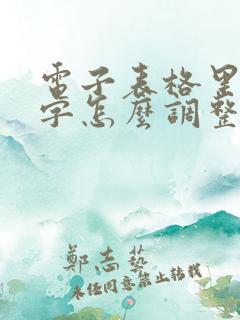 電子表格里
字怎麼調整
鄭志藝
未经同意禁止转载